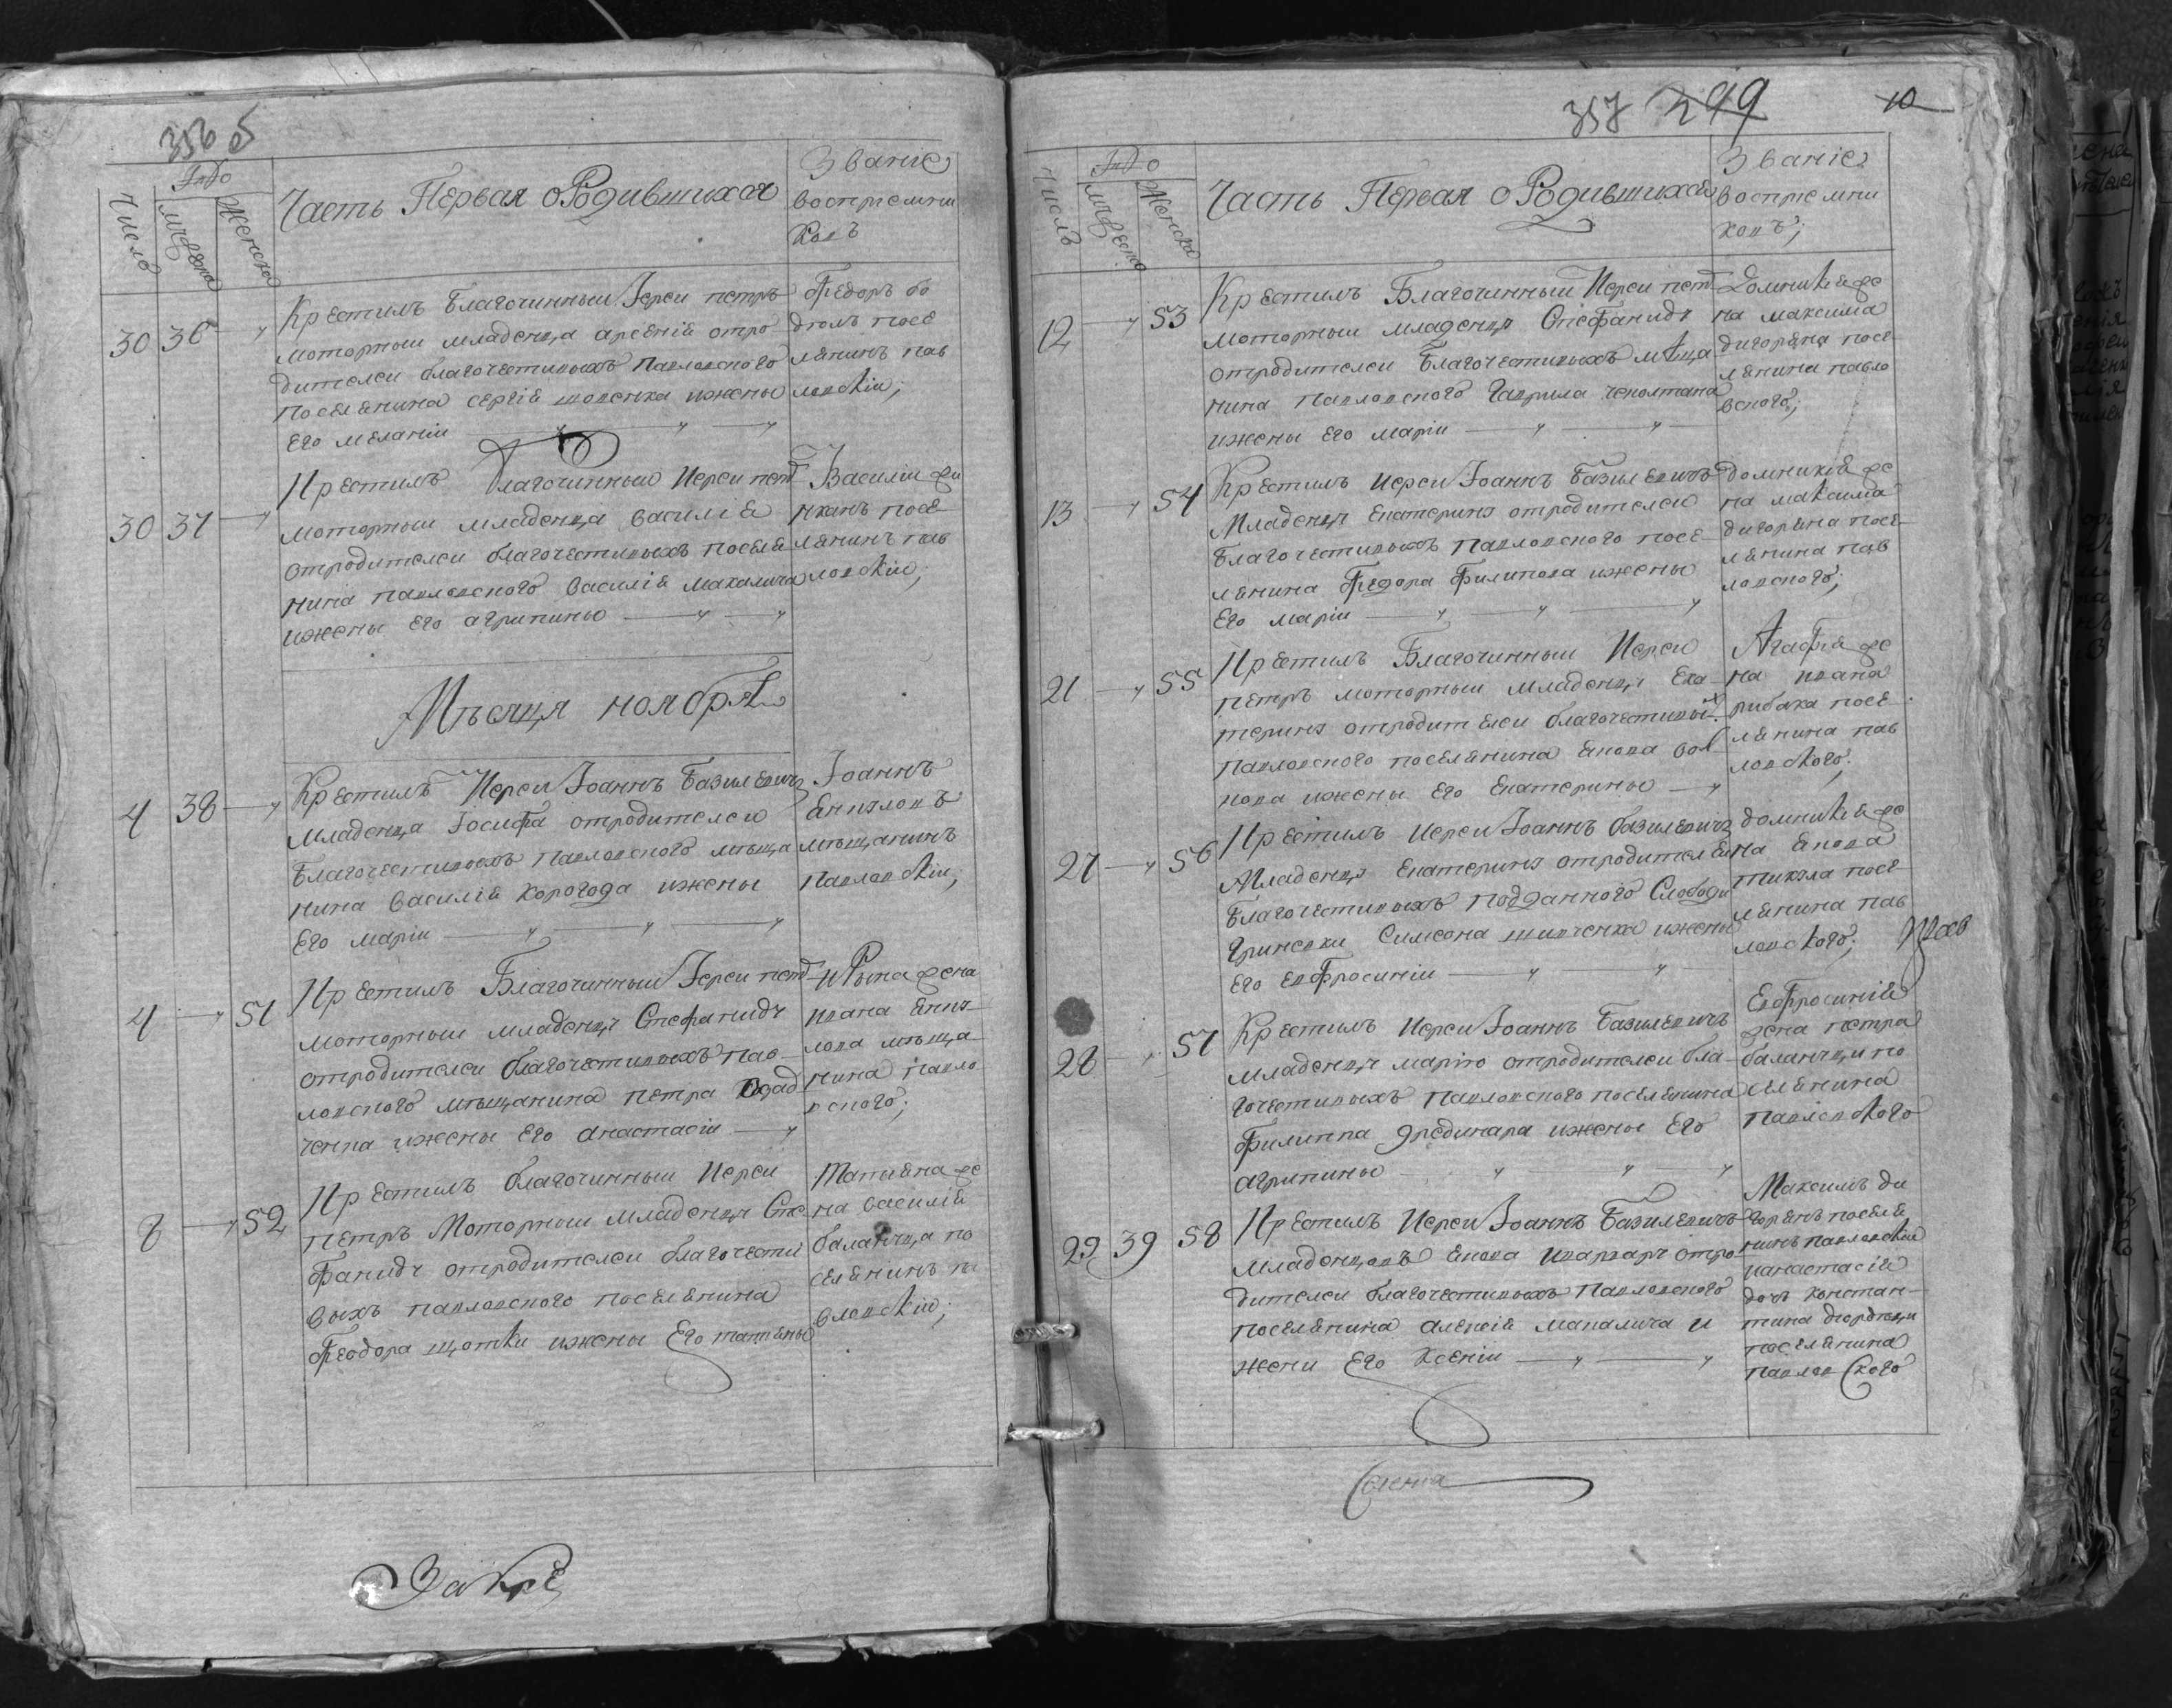 356 б
Число
Муж
Женска
Часть Первая о Родившихся
Званіе
воспріемни
ковъ
30 36
Крестилъ Благочинный Іереи петръ
моторныи младенца арсеніѣ отро
дителеи благочестивыхъ Павловского
Поселянина сергіѣ шовенка ижены
Его меланіи
Федоръ бо
дюлъ посе
лянинъ пав
ловскіи;
30 37
Крестилъ Благочинныи Иереи пет
моторныи младенца василіѣ
отродителеи благочестивыхъ поселя
нина павловского василіѣ
ижены Его агрипины
Василіи
посе
лянинъ пав
ловскіи;
Мѣсяця ноября
4 38
Крестилъ Иереи Іоаннъ Базилевичъ
Младенца Іосифа отродителеи
Благочестивыхъ павловского мѣща
нина василіѣ корогода ижены
Его маріи
Іоаннъ
мѣщанинъ
Павловскіи;
4 51
Крестилъ Благочинныи Іереи пет
моторныи младенца Стефаниду
отродителеи благочестивыхъ пав
ловского мѣщанина петра
ченка ижены Его анастасіи
жена
ивана
лова мѣща
нина павло
вского;
8 52
Крестилъ благочинныи Иереи
петръ Моторныи младенца Сте
фаниду отродителеи благочести
выхъ павловского поселянина
Феодора щотки ижены Его татіяны
Татіяна же
на василіѣ
баланчца по
селянинъ па
вловскіи;
357 299 10
Число
Муж
Женска
Часть Первая о Родившихся
Званіе
воспріемни
ковъ;
12 53
Крестилъ Благочинныи Иереи пет
моторныи младенца Стефаниду
отродителеи Благочестивыхъ мѣща
нина Павловского Гаврила чеколтана
ижены Его маріи
Домникія же
на максима
дигоряна посе
лянина павло
вского;
13 54
Крестилъ Иереи Іоаннъ Базилевичъ
Младенца Екатерину отродителеи
Благочестивыхъ Павловского посе
лянина Федора Филипова ижены
Его маріи
домникіѣ же
на максима
дигоряна посе
лянина пав
ловского;
21 55
Крестилъ Благочинныи Иереи
петръ моторныи младенца Ека
терину отродителеи благочестивых
павловского поселянина якова
нова ижены Его Екатерины
Агафія же
на ивана
рибака посе
лянина пав
ловского;
27 56
Крестилъ Иереи Іоаннъ базилевичъ
Младенца Екатерину отродителеи
Благочестивыхъ подданного Слободи
Гриневки Симеона шивченка ижены
Его Евфросиніи
домникіѣ же
на якова
посе
лянина пав
ловского;
28 57
Крестилъ Иереи Іоаннъ Базилевичъ
младенца марію отродителеи бла
гочестивыхъ павловского поселянина
Филиппа ижены Его
агрипины
Евфросиніѣ
жена петра
баланчци по
селянина
павловского
29 39 58
Крестилъ Иереи Іоаннъ Базилевичъ
Младенцовъ Якова иварвару отро
дителеи благочестивыхъ Павловского
поселянина алексіѣ мапалича и
жени Его Ксеніи
Максимъ ди
горянъ поселя
нинъ павловскіи
ианастасіѣ
дочь констан
тина
поселянина
павловского